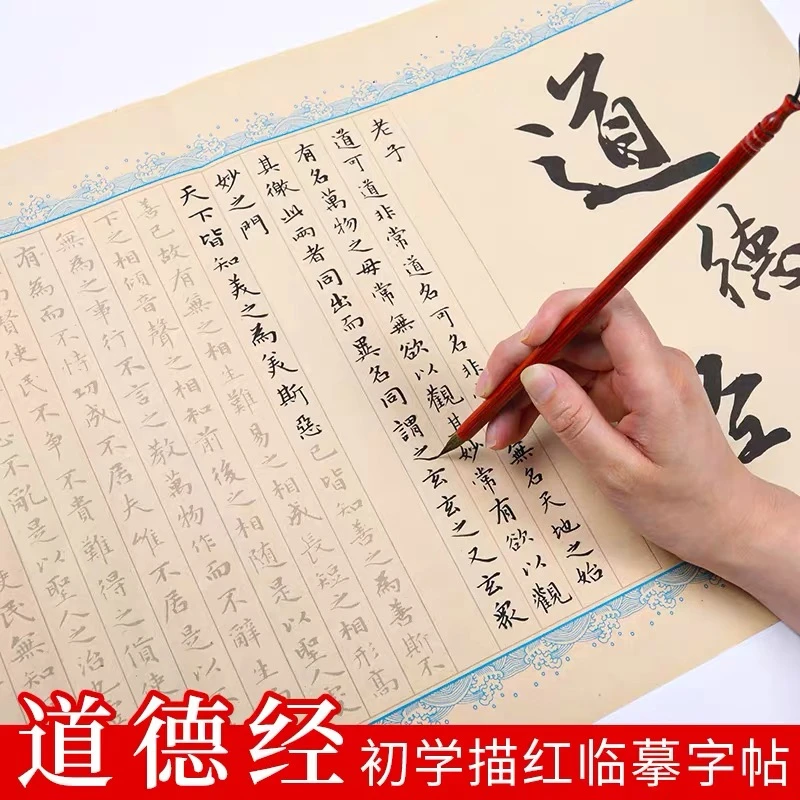 道德经
老子
道可道非常道名可名非無名天地之始
有名萬物之母常無欲以觀其妙常有欲以觀
其徼此兩者同出而異名同謂之玄玄之又玄眾
妙之門
天下皆知美之為美斯惡已皆知善之為善斯不
善已故有無之相生難易之相成長短之相形高
下之相傾音聲之相和前後之相随是以聖人處
無為之事行不言之教萬物作而不辭生
有為而不恃功成不居夫唯不居是以
賢使民不争不貴難得之貨使
心不亂是以聖人之治
使民無知
道德经 初学描红临摹字帖